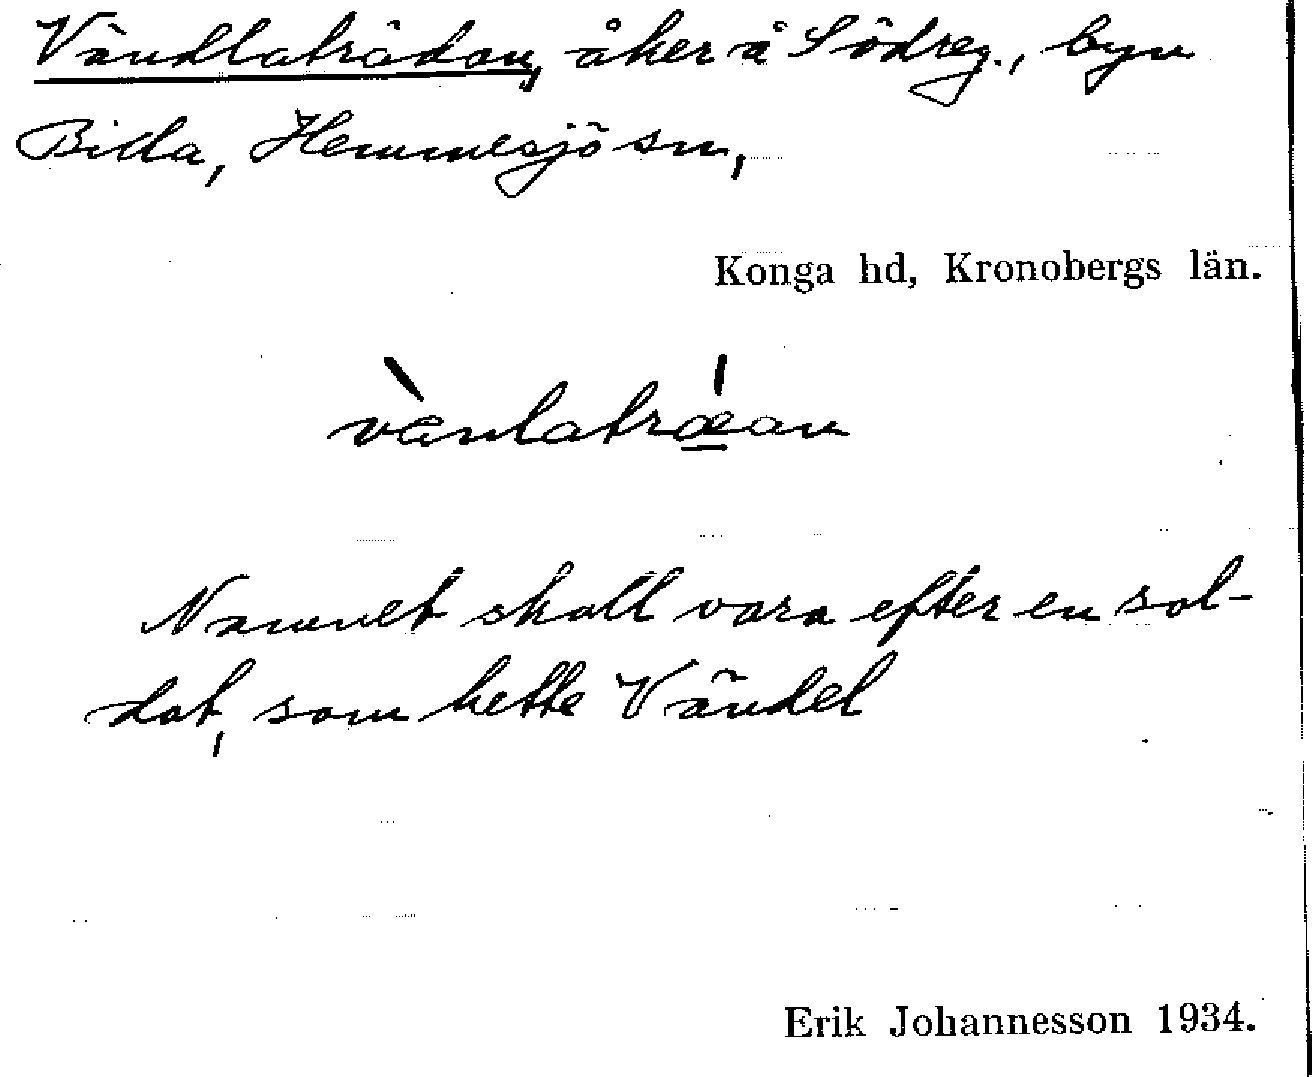 Vändlaträdan, åker å Södreg., byn
Billa, Hemmesjö sn,
Konga hd, Kronobergs län.
vànlatrǽ̲an
Namnet skall vara efter en sol-
dat, som hette Vändel
Erik Johannesson 1934.